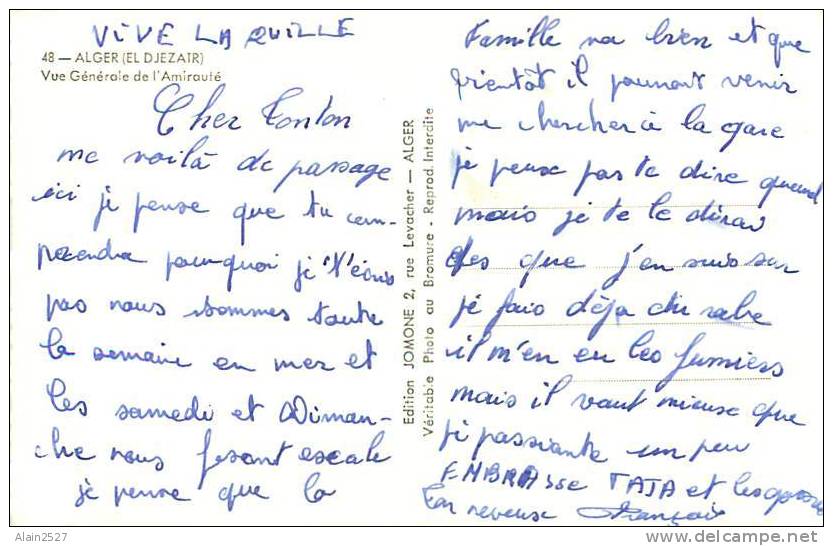 VIVE LA QUILLE
48 — ALGER (EL DJEZAIR)
Vue Générale de l'Amirauté
Cher Tonton
me voilà de passage
ici je pense que tu com-
prendra pourquoi je t'écris
pas nous sommes toute
la semaine en mer et
les samedi et Diman-
che nous fesont escale
je pense que la
Edition JOMONE 2, rue Levacher — ALGER
Véritable Photo au Bromure - Reprod. Interdite
Famille va bien et que
bientôt il pourront venir
me chercher à la gare
je peux pas te dire quand
mais je te le dirai
des que j'en suis sur
je fais déja du rabe
il m'en en les fumiers
mais il vaut mieux que
je passiante un peu
EMBRAsse TATA et les gosses
Ton neveux François
Alain2527
www.delcampe.net